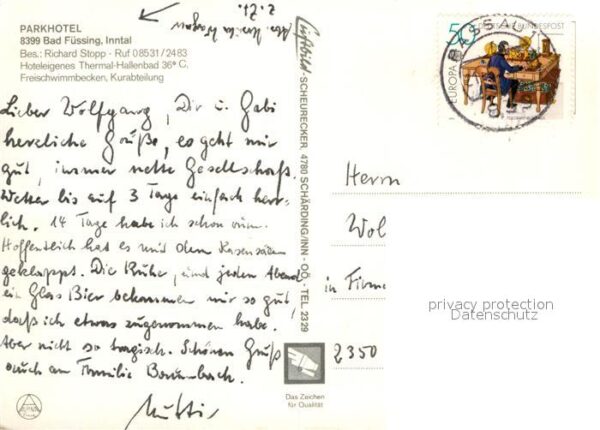 PARKHOTEL
8399 Bad Füssing, Inntal
Bes.: Richard Stopp · Ruf 08531/2483
Hoteleigenes Thermal-Hallenbad 36° C.
Freischwimmbecken, Kurabteilung
z. Zt.
Lieber Wolfgang, Dir u. Gabi
herzliche Grüße, es geht mir
gut, immer nette Gesellschaft.
Wetter bis auf 3 Tage einfach herr-
lich. 14 Tage habe ich schon
Hoffentlich hat es mit dem Rasensäen
geklappt. Die Ruhe, und jeden Abend
ein Glas Bier bekommen mir so gut,
daß ich etwas zugenommen habe.
Aber nicht so tragisch. Schönen Gruß
auch an Familie
Mutti
Luftbild - SCHEURECKER, 4780 SCHÄRDING/INN - OÖ - TEL. 2329
Das Zeichen
für Qualität
50
DEUTSCHE BUNDESPOST
EUROPA
PASSAU 1
Herrn
Wol
in Firma
2350
privacy protection
Datenschutz